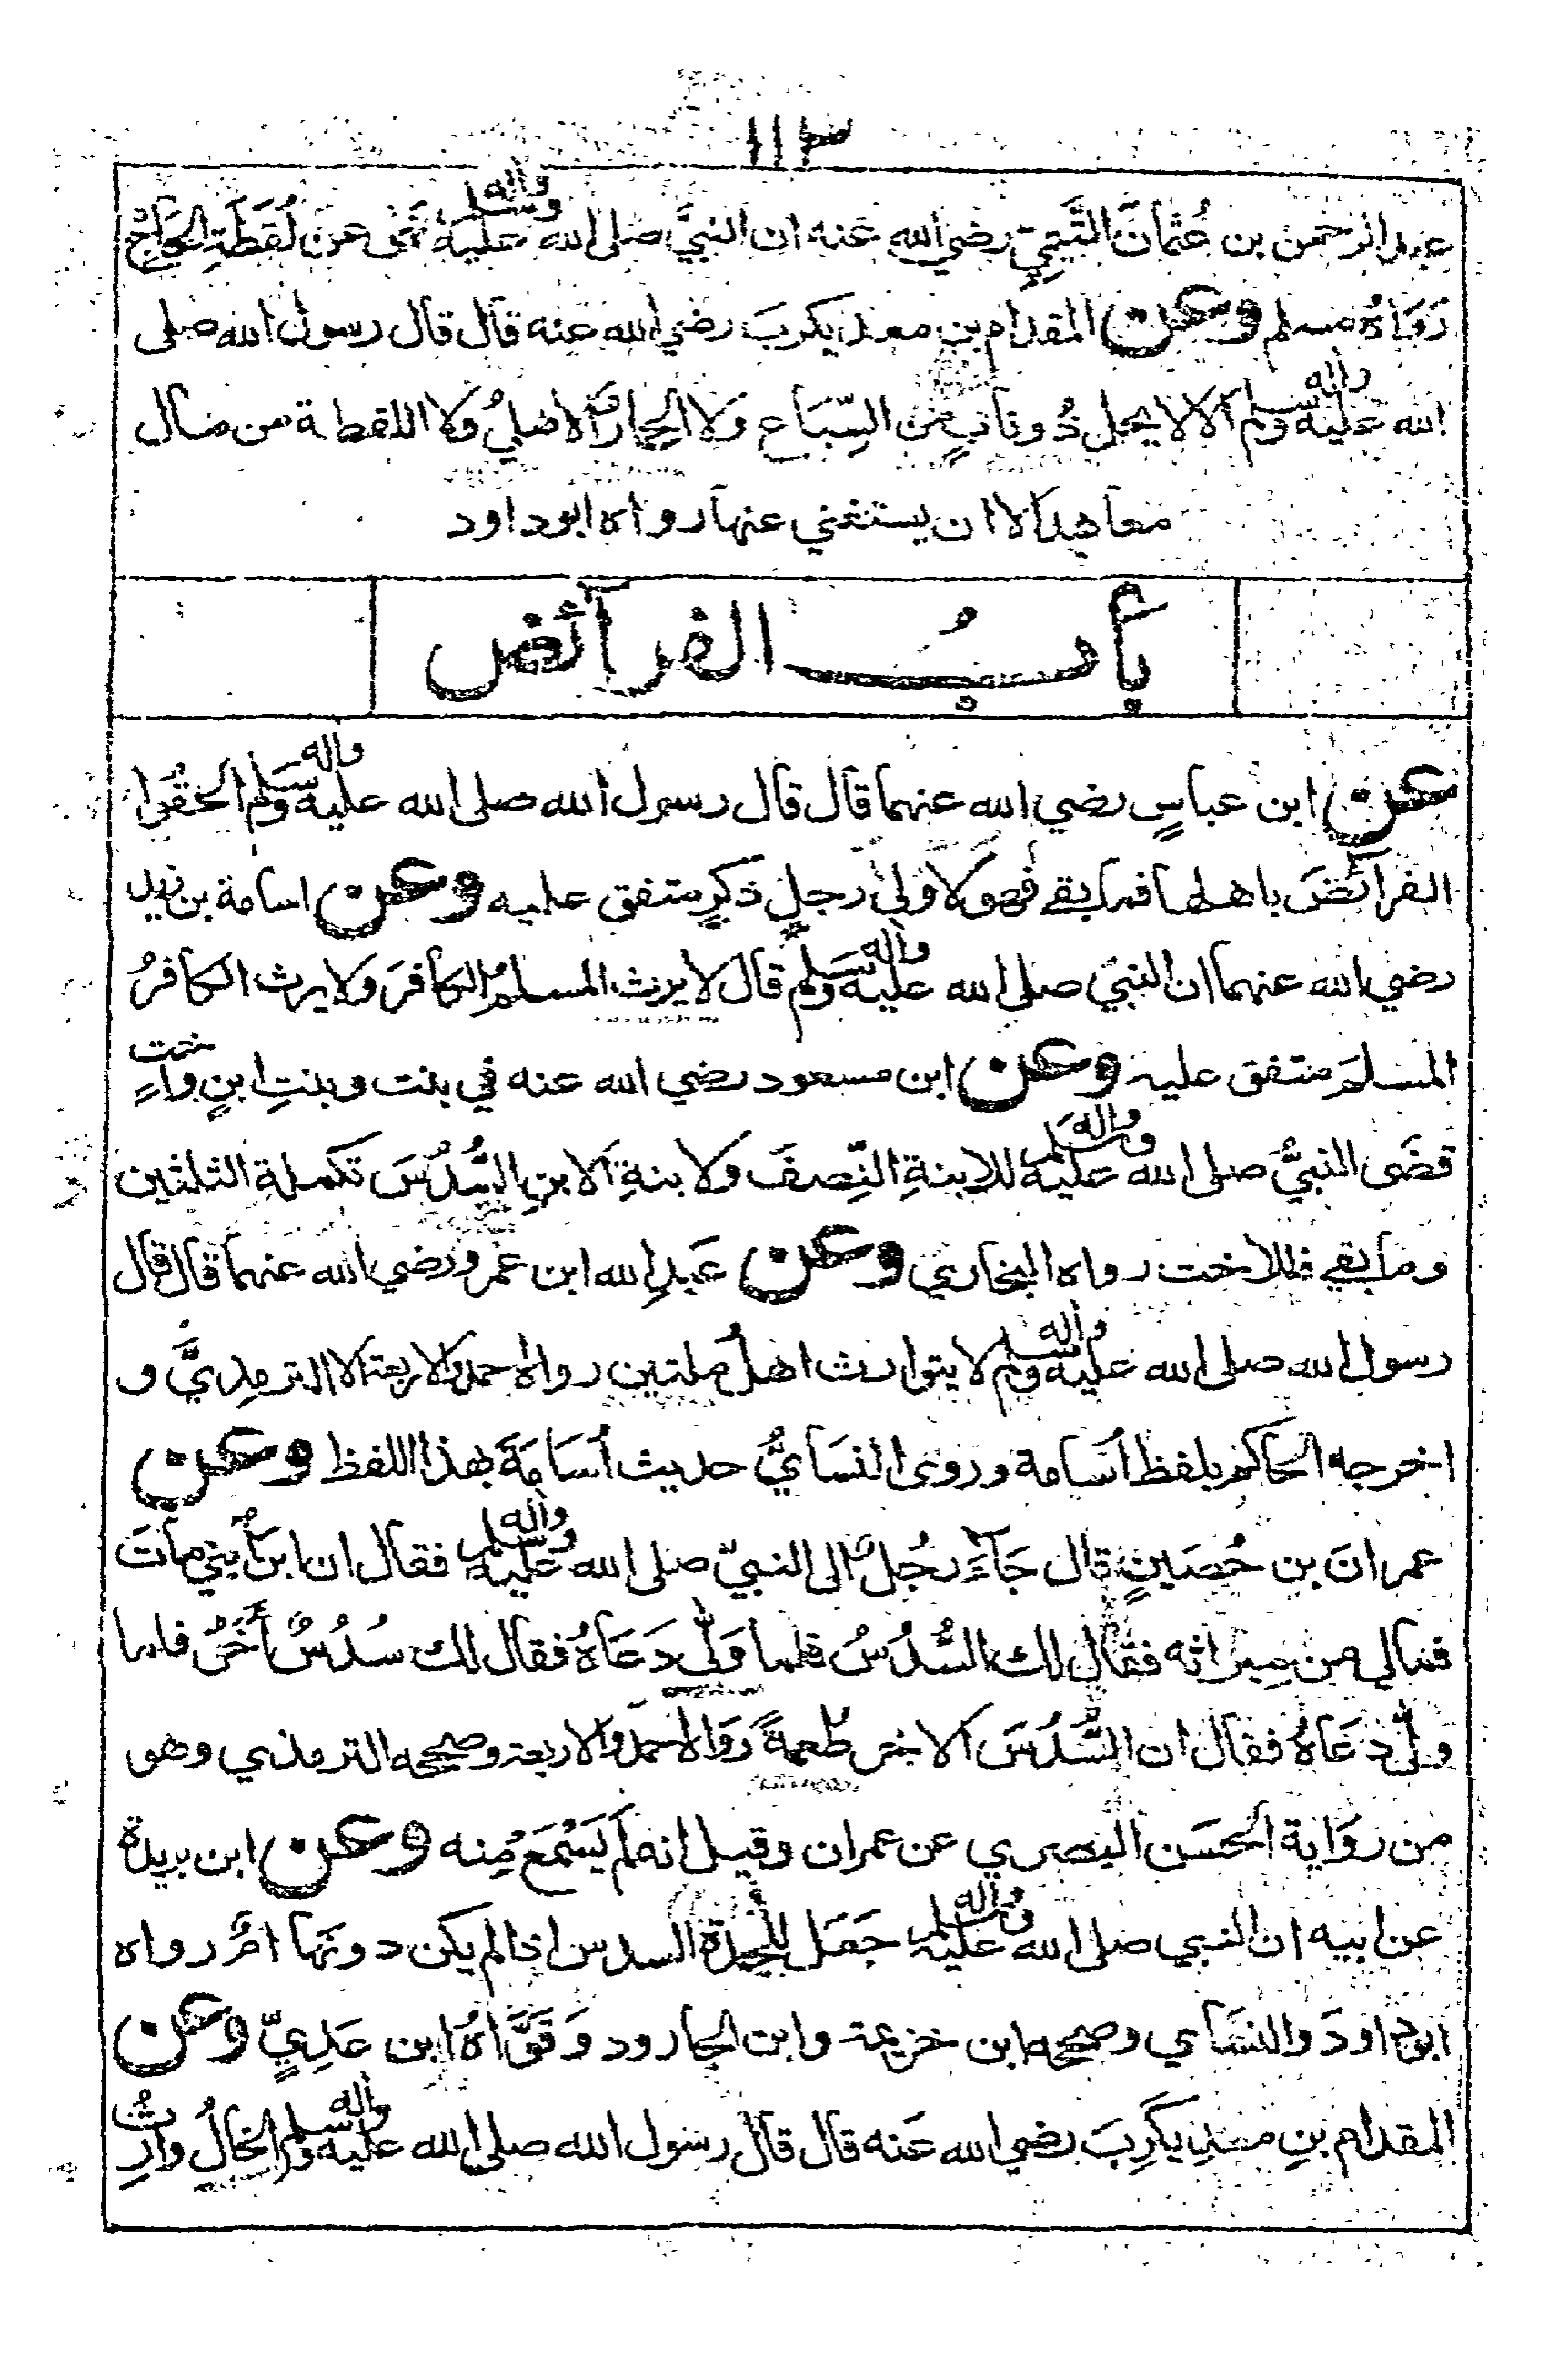 ١١٣
عبد الرحمن بن عُثمَانَ التَّيمِيِّ رضي الله عنه ان النبيَّ صلى الله عليه واله وسلم نهى عن لُقَطَةِ الحَاجِّ
رَوَاهُ مسلم وعن المقدام بن معد يكربَ رضي الله عنه قال قال رسول الله صلى
الله عليه واله وسلم الا لا يحل ذُو نابٍ من السِّبَاعِ ولا الحِمارُ الاهليُّ ولا اللقطة من مال
معاهد الا ان يستغني عنها رواه ابو داود
بابُ الفرائض
عن ابن عباسٍ رضي الله عنهما قال قال رسول الله صلى الله عليه واله وسلم الحقُوا
الفرائضَ باهلها فما بقے فهو لاولى رجلٍ ذكرٍ متفق عليه وعن اسامة بن زيد
رضي الله عنهما ان النبي صلى الله عليه واله وسلم قال لا يرث المسلمُ الكافرَ ولا يرث الكافرُ
المسلمَ متفق عليه وعن ابن مسعود رضي الله عنه في بنت وبنتِ ابنٍ واختٍ
قضَى النبيُّ صلى الله عليه واله وسلم للابنةِ النِّصفَ ولابنةِ الابنِ السُّدُسَ تكملة الثلثين
وما بقے فللاخت رواه البخاري وعن عَبدِ الله ابن عَمرو رضي الله عنهما قال قال
رسول الله صلى الله عليه واله وسلم لا يتوارث اهلُ ملتين رواه احمد والاربعة الا الترمذيَّ و
اخرجه الحاكم بلفظ اُسَامة وروى النسَايُّ حديث اُسَامَةَ بهذا اللفظ وعن
عمرانَ بن حُصَينٍ قال جَاءَ رجُلٌ الى النبيّ صلى الله عليه واله وسلم فقال ان ابنَ ابني ماتَ
فمالي من ميراثه فقال لك السُّدُسُ فلما وَلّٰى دَعَاهُ فقال لك سُدُسٌ اٰخَرُ فلما
ولّٰى دَعَاهُ فقال ان السُّدُسَ الاخر طُعمةً رَوَاه احمد والاربعة وصححه الترمذي وهو
من روَاية الحسَن البصري عن عمران وقيل انه لم يَسْمَعْ مِنه وعن ابن بريدة
عن ابيه ان النبي صلى الله عليه واله وسلم جَعَل للجدة السدس اذا لم يكن دونَها امٌّ رواه
ابو داودَ والنسَاي وصححه ابن خزيمة وابن الجارود وَقَوَّاهُ ابن عَدِيٍّ وعن
المقدام بنِ معدِيكَرِبَ رضي الله عَنه قال قال رسول الله صلى الله عليه واله وسلم الخالُ وارِثُ